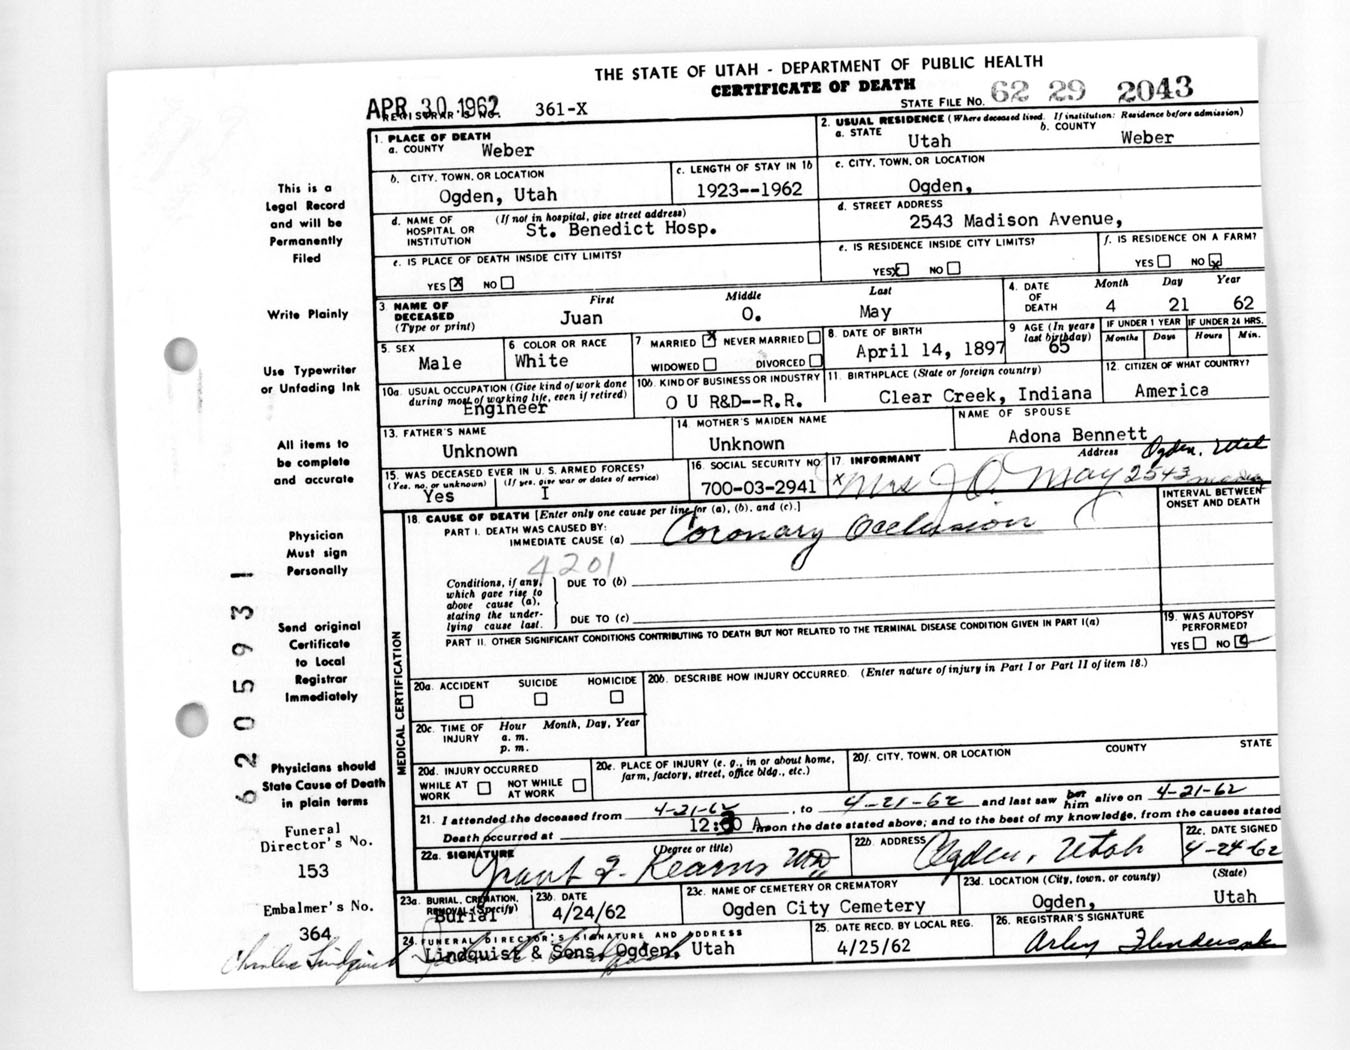 THE STATE OF UTAH - DEPARTMENT OF PUBLIC HEALTH
CERTIFICATE OF DEATH
APR 30 1962 361-X STATE FILE NO. 62 29 2043
REGISTRAR'S NO.
1. PLACE OF DEATH
a. COUNTY Weber
2. USUAL RESIDENCE (Where deceased lived. If institution: Residence before admission)
a. STATE Utah b. COUNTY Weber
b. CITY, TOWN, OR LOCATION Ogden, Utah
c. LENGTH OF STAY IN 1b 1923--1962
c. CITY, TOWN, OR LOCATION Ogden,
d. NAME OF HOSPITAL OR INSTITUTION (If not in hospital, give street address) St. Benedict Hosp.
d. STREET ADDRESS 2543 Madison Avenue,
e. IS PLACE OF DEATH INSIDE CITY LIMITS?
YES X NO
e. IS RESIDENCE INSIDE CITY LIMITS?
YES X NO
f. IS RESIDENCE ON A FARM?
YES NO X
3. NAME OF DECEASED (Type or print)
First Middle Last
Juan O. May
4. DATE OF DEATH
Month Day Year
4 21 62
5. SEX Male
6 COLOR OR RACE White
7 MARRIED X NEVER MARRIED
WIDOWED DIVORCED
8. DATE OF BIRTH April 14, 1897
9 AGE (In years last birthday) 65
IF UNDER 1 YEAR IF UNDER 24 HRS.
Months Days Hours Min.
10a. USUAL OCCUPATION (Give kind of work done during most of working life, even if retired) Engineer
10b. KIND OF BUSINESS OR INDUSTRY O U R&D--R.R.
11. BIRTHPLACE (State or foreign country) Clear Creek, Indiana
12. CITIZEN OF WHAT COUNTRY? America
13. FATHER'S NAME Unknown
14. MOTHER'S MAIDEN NAME Unknown
NAME OF SPOUSE Adona Bennett
15. WAS DECEASED EVER IN U. S. ARMED FORCES?
(Yes, no, or unknown) Yes (If yes, give war or dates of service) I
16. SOCIAL SECURITY NO. 700-03-2941
17. INFORMANT Address
x Mrs J O. May 2543 Ogden, Utah
18. CAUSE OF DEATH [Enter only one cause per line for (a), (b), and (c).]
INTERVAL BETWEEN ONSET AND DEATH
PART I. DEATH WAS CAUSED BY:
IMMEDIATE CAUSE (a) Coronary Occlusion
4201
Conditions, if any, which gave rise to above cause (a), stating the underlying cause last.
DUE TO (b)
DUE TO (c)
PART II. OTHER SIGNIFICANT CONDITIONS CONTRIBUTING TO DEATH BUT NOT RELATED TO THE TERMINAL DISEASE CONDITION GIVEN IN PART I(a)
19. WAS AUTOPSY PERFORMED?
YES NO
MEDICAL CERTIFICATION
20a. ACCIDENT SUICIDE HOMICIDE
20b. DESCRIBE HOW INJURY OCCURRED. (Enter nature of injury in Part I or Part II of item 18.)
20c. TIME OF INJURY Hour a. m. p. m. Month, Day, Year
20d. INJURY OCCURRED
WHILE AT WORK NOT WHILE AT WORK
20e. PLACE OF INJURY (e. g., in or about home, farm, factory, street, office bldg., etc.)
20f. CITY, TOWN, OR LOCATION COUNTY STATE
21. I attended the deceased from 4-21-62, to 4-21-62 and last saw her him alive on 4-21-62
Death occurred at A m on the date stated above; and to the best of my knowledge, from the causes stated
22a. SIGNATURE (Degree or title) Grant F. Kearns MD
22b. ADDRESS Ogden, Utah
22c. DATE SIGNED 4-24-62
23a. BURIAL, CREMATION, REMOVAL (Specify) Burial
23b. DATE 4/24/62
23c. NAME OF CEMETERY OR CREMATORY Ogden City Cemetery
23d. LOCATION (City, town, or county) (State)
Ogden, Utah
24. FUNERAL DIRECTOR'S SIGNATURE AND ADDRESS
Lindquist & Sons, Ogden, Utah
25. DATE RECD. BY LOCAL REG. 4/25/62
26. REGISTRAR'S SIGNATURE
This is a
Legal Record
and will be
Permanently
Filed
Write Plainly
Use Typewriter
or Unfading Ink
All items to
be complete
and accurate
Physician
Must sign
Personally
Send original
Certificate
to Local
Registrar
Immediately
Physicians should
State Cause of Death
in plain terms
Funeral
Director's No.
153
Embalmer's No.
364
Charles Lindquist
6205931